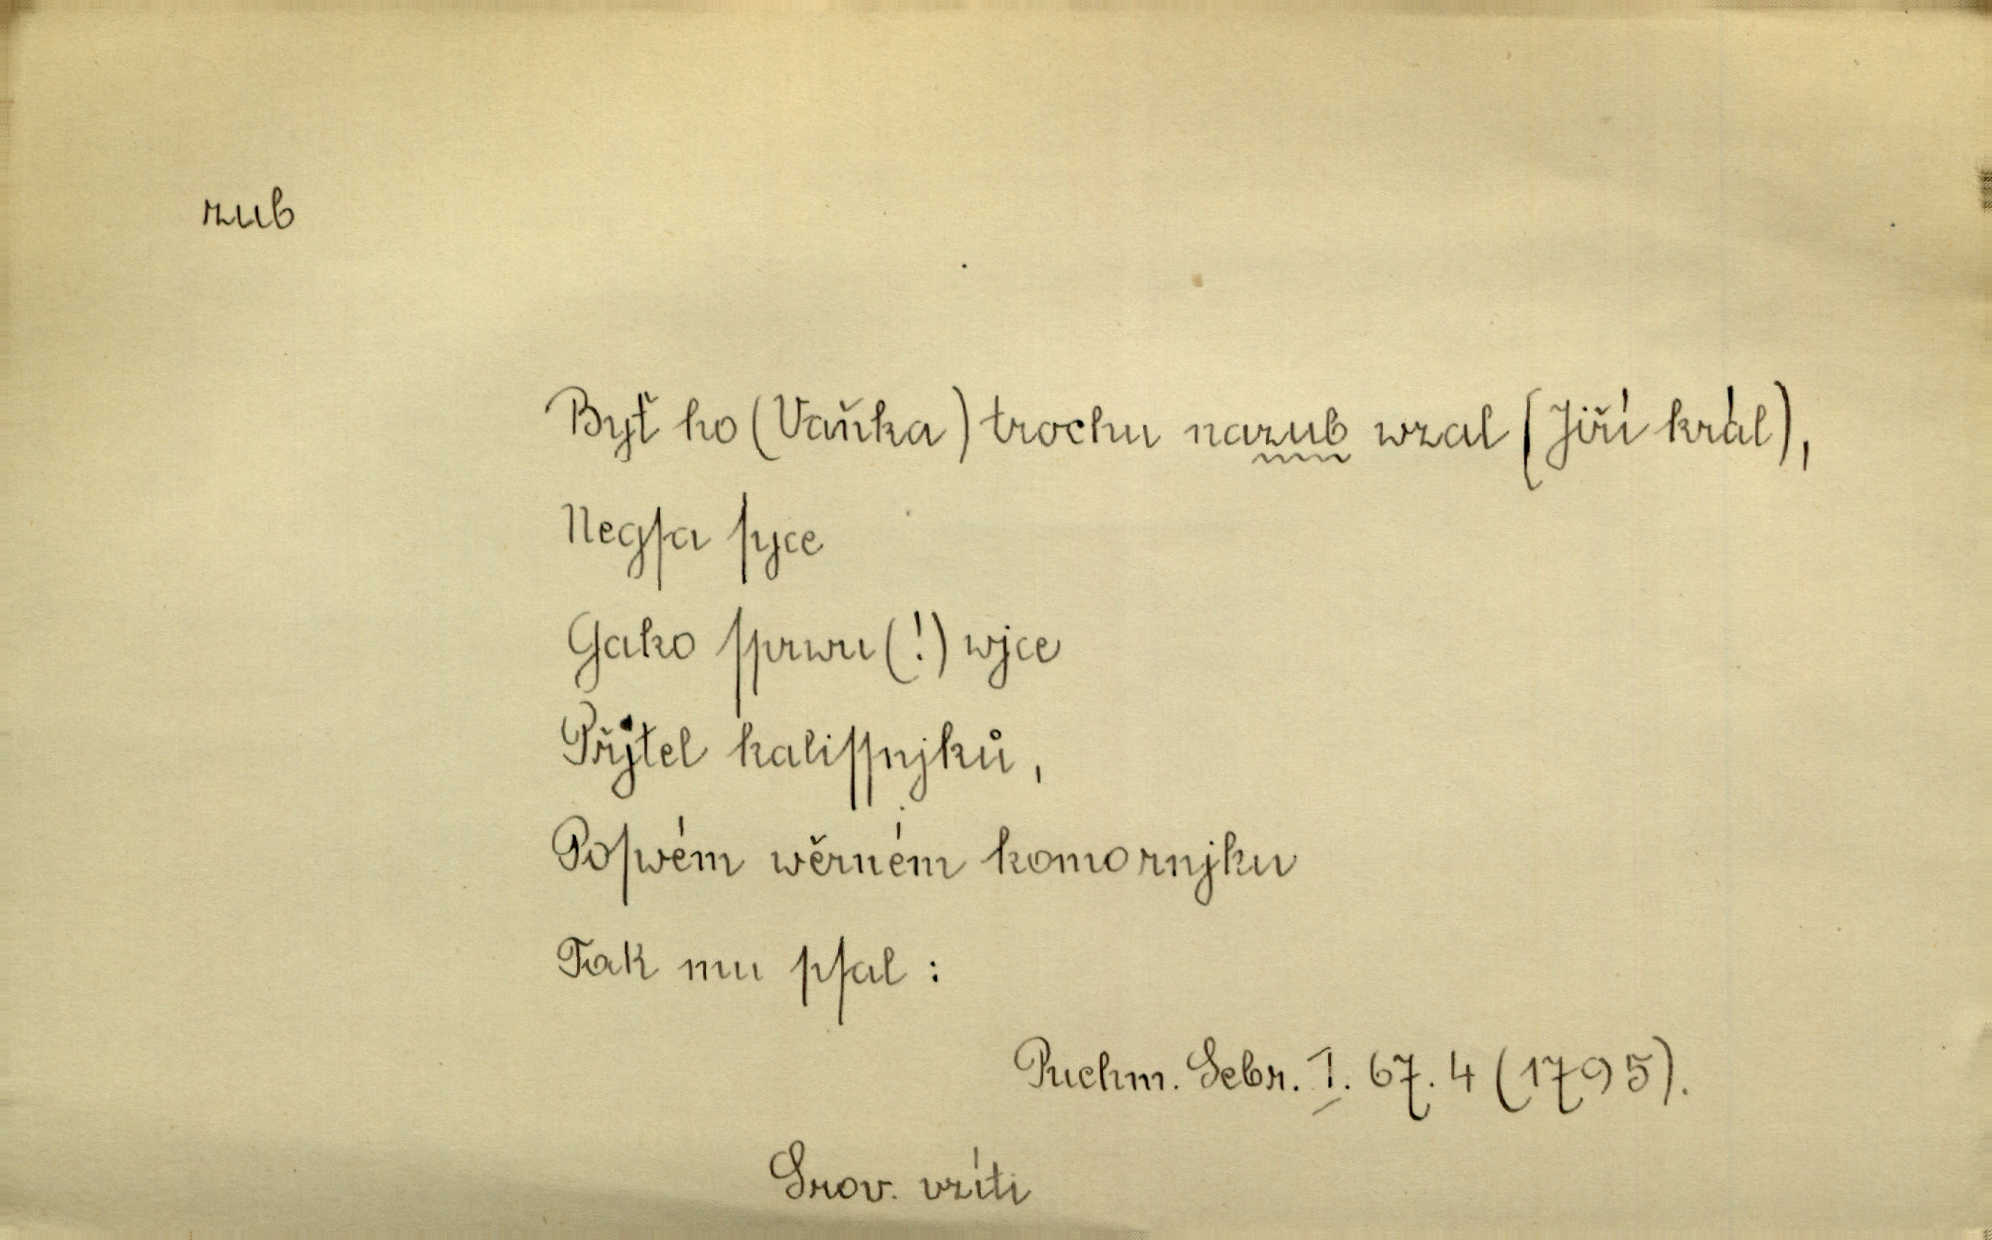 zub
Byť ho (Vaňka) trochu nazub wzal (Jiří král),
Negſa ſyce
Gako ſprwu (!) wjce
Přjtel kaliſſnjků,
Poſwém wěrném komornjku
Tak mu pſal :
Puchm. Sebr. I. 67. 4 (1795).
Srov. vzíti